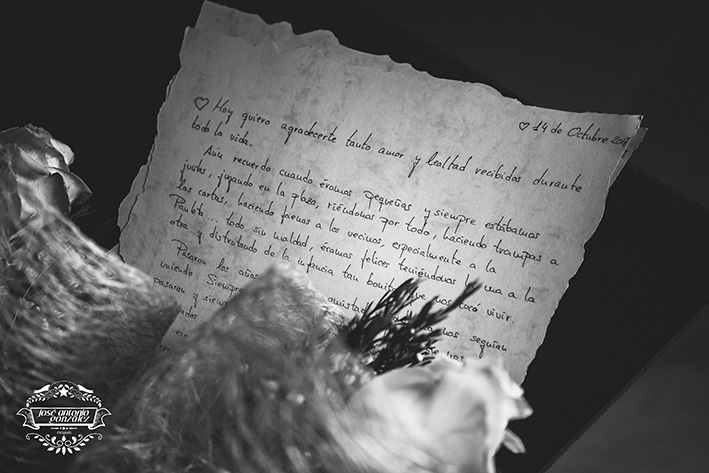 ♡ 14 de Octubre 201
♡ Hoy quiero agradecerte tanto amor y lealtad recibidas durante
toda la vida.
Aún recuerdo cuando éramos pequeñas y siempre estábamos
juntas, jugando en la plaza, riéndonos por todo, haciendo trampas a
las cartas, haciendo faenas a los vecinos, especialmente a la
todo sin maldad, éramos felices teniéndonos la una a la
otra y disfrutando de la infancia tan bonita que nos tocó vivir.
Pasaron los años
amistad nos seguían
uniendo. Siempre
pasaron y siem
nos
josé antonio
gonzález